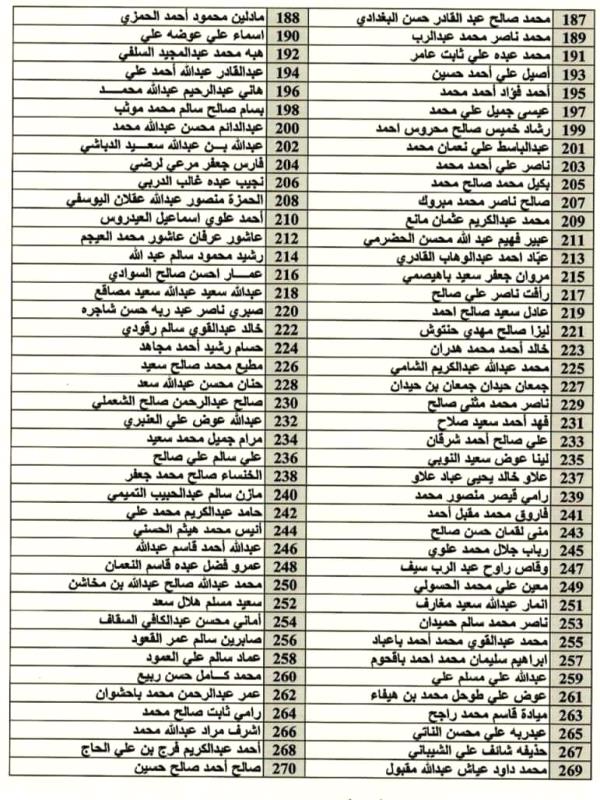 187 محمد صالح عبد القادر حسن البغدادي 188 مادلين محمود أحمد الحمزي
189 محمد ناصر محمد عبدالرب 190 اسماء علي عوضه علي
191 محمد عبده علي ثابت عامر 192 هبه محمد عبدالمجيد السلفي
193 أصيل علي أحمد حسين 194 عبدالقادر عبدالله أحمد علي
195 أحمد فؤاد أحمد محمد 196 هاني عبدالرحيم عبدالله محمـــد
197 عيسى جميل علي محمد 198 بسام صالح سالم محمد موئب
199 رشاد خميس صالح محروس احمد 200 عبدالدائم محسن عبدالله محمد
201 عبدالباسط علي نعمان محمد 202 عبدالله بــن عبدالله سعـــيد الدباشي
203 ناصر علي أحمد محمد 204 فارس جعفر مرعي لرضي
205 بكيل محمد صالح محمد 206 نجيب عبده غالب الدربي
207 صالح ناصر محمد مبروك 208 الحمزة منصور عبدالله عقلان اليوسفي
209 محمد عبدالكريم عثمان مانع 210 أحمد علوي اسماعيل العيدروس
211 عبير فهيم عبد الله محسن الحضرمي 212 عاشور عرفان عاشور محمد العيجم
213 عبّاد احمد عبدالوهاب القادري 214 رشيد محمود سالم عبد الله
215 مروان جعفر سعيد باهيصمي 216 عمـــار احسن صالح السوادي
217 رأفت ناصر علي صالح 218 عبدالله سعيد عبدالله سعيد مصاقع
219 عادل سعيد صالح احمد 220 صبري ناصر عبد ربه حسن شاجره
221 ليزا صالح مهدي حنتوش 222 خالد عبدالقوي سالم رقودي
223 خالد أحمد محمد هدران 224 حسام رشيد أحمد مجاهد
225 محمد عبدالله عبدالكريم الشامي 226 مطيع محمد صالح سعيد
227 جمعان حيدان جمعان بن حيدان 228 حنان محسن عبدالله سعد
229 ناصر محمد مثنى صالح 230 صالح عبدالرحمن صالح الشعملي
231 فهد أحمد سعيد صلاح 232 عبدالله عوض علي العنبري
233 علي صالح أحمد شرقان 234 مرام جميل محمد سعيد
235 لينا عوض سعيد النوبي 236 علي سالم علي صالح
237 علاو خالد يحيى عباد علاو 238 الخنساء صالح محمد جعفر
239 رامي قيصر منصور محمد 240 مازن سالم عبدالحبيب التميمي
241 فاروق محمد مقبل أحمد 242 حامد عبدالكريم محمد علي
243 منى لقمان حسن صالح 244 أنيس محمد هيثم الحسني
245 رباب جلال محمد علوي 246 عبدالله أحمد قاسم عبدالله
247 وقاص راوح عبد الرب سيف 248 عمرو فضل عبده قاسم النعمان
249 معين علي محمد الحسولي 250 محمد عبدالله صالح عبدالله بن مخاشن
251 انمار عبدالله سعيد مغارف 252 سعيد مسلم هلال سعد
253 ناصر محمد سالم حميدان 254 أماني محسن عبدالكافي السقاف
255 محمد عبدالقوي محمد أحمد باعباد 256 صابرين سالم عمر القعود
257 ابراهيم سليمان محمد احمد باقحوم 258 عماد سالم علي العمود
259 عبدالله علي مسلم علي 260 محمد كــامل حسن ربيع
261 عوض علي طوحل محمد بن هيفاء 262 عمر عبدالرحمن محمد باحشوان
263 ميادة قاسم محمد راجح 264 رامي ثابت صالح محمد
265 عبدربه علي محسن الناتي 266 اشرف مراد عبدالله محمد
267 حذيفه شائف علي الشيباني 268 أحمد عبدالكريم فرج بن علي الحاج
269 محمد داود عياش عبدالله مقبول 270 صالح أحمد صالح حسين